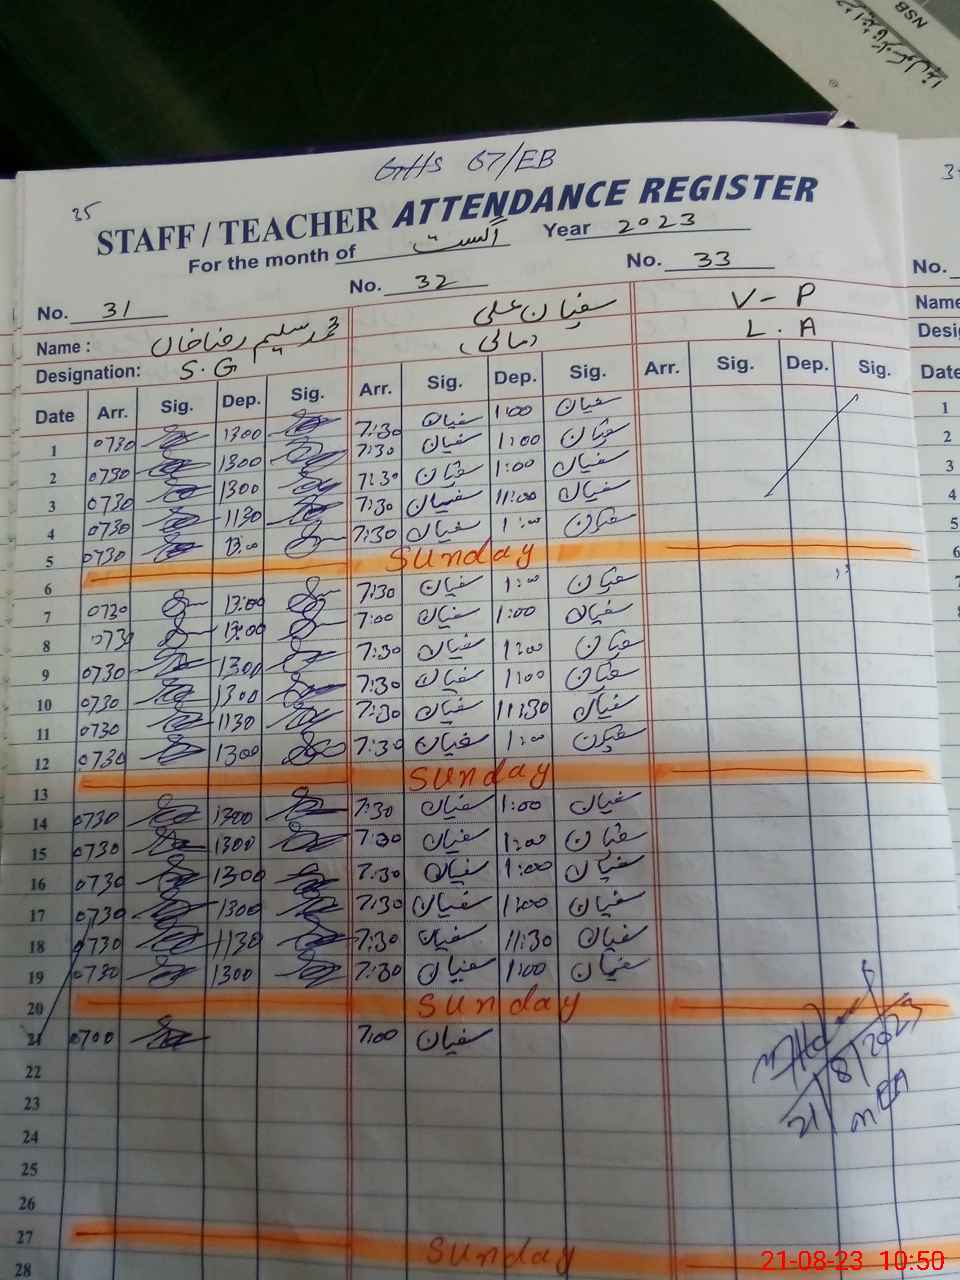 NSB
GHHS 67/EB
35
STAFF / TEACHER ATTENDANCE REGISTER
For the month of اگست Year 2023
No. 31 No. 32 No. 33 No.
Name : محمد سلیم رضا خان سفیان علی V-P Name
Designation: S.G (مالی) L.A Desig
Date Arr. Sig. Dep. Sig. Arr. Sig. Dep. Sig. Arr. Sig. Dep. Sig. Date
1 0730 1300 7:30 سفیان 1:00 سفیان 1
2 0730 1300 7:30 سفیان 1:00 سفیان 2
3 0730 1300 7:30 سفیان 1:00 سفیان 3
4 0730 1130 7:30 سفیان 11:00 سفیان 4
5 0730 13:00 7:30 سفیان 1:00 سفیان 5
6 Sunday 6
7 0730 13:00 7:30 سفیان 1:00 سفیان 7
8 0730 13:00 7:00 سفیان 1:00 سفیان 8
9 0730 1300 7:30 سفیان 1:00 سفیان
10 0730 1300 7:30 سفیان 1:00 سفیان
11 0730 1130 7:30 سفیان 11:30 سفیان
12 0730 1300 7:30 سفیان 1:00 سفیان
13 Sunday
14 0730 1300 7:30 سفیان 1:00 سفیان
15 0730 1300 7:30 سفیان 1:00 سفیان
16 0730 1300 7:30 سفیان 1:00 سفیان
17 0730 1300 7:30 سفیان 1:00 سفیان
18 0730 1130 7:30 سفیان 11:30 سفیان
19 0730 1300 7:30 سفیان 1:00 سفیان
20 Sunday
21 0700 7:00 سفیان
22
23
24
25
26
27 Sunday
28
21/8/2023
MEA
21-08-23 10:50